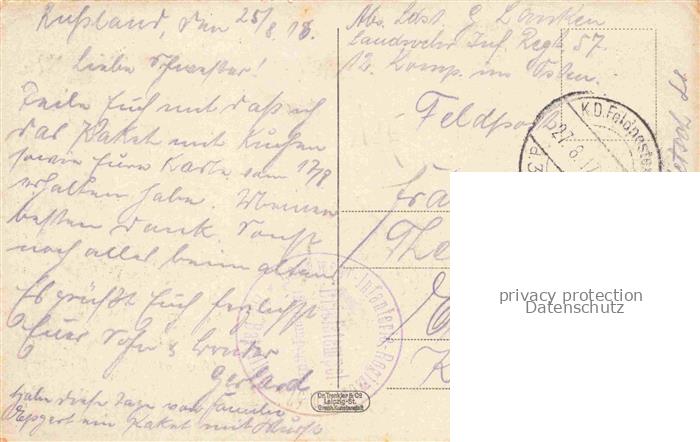 Rußland, den 25/8 18.
Liebe Schwester!
Teile Euch mit daß ich
das Paket mit Kuchen
sowie Eure Karte vom 17/8
erhalten habe. Meinen
besten Dank. Sonst
noch alles beim alten
Es grüßt Euch herzlichst
Euer Sohn & Bruder
Gerhard
habe diese Tage von Familie
ein Paket mit
Abs. Ldst. G.
Landwehr Inf. Regt. 57.
12. Komp. im Osten.
Feldpost
K.D. Feldpostex
27. 8. 17
Infanterie-Regim
Dr. Trenkler & Co
Leipzig-St.
Graph. Kunstanstalt
privacy protection
Datenschutz